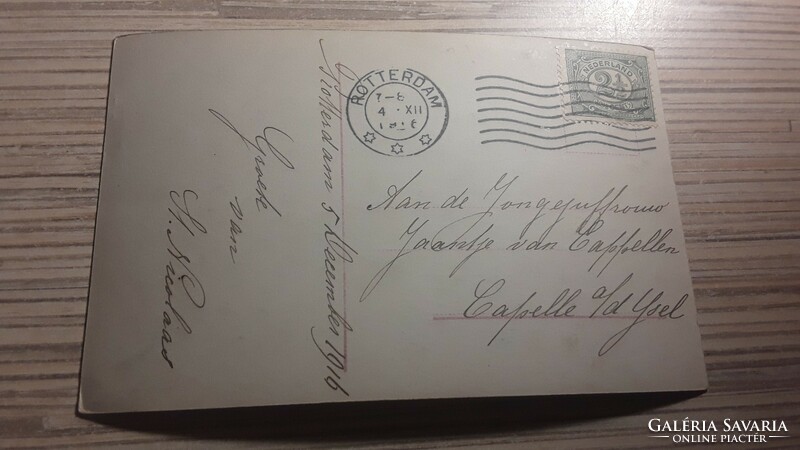 Rotterdam 5 December 1916
Groete
van
St. Nicolaas
ROTTERDAM
7-8
4 XII
1916
NEDERLAND
2½
Aan de Jongejuffrouw
Jaantje van Cappellen
Capelle a/d Ysel
GALÉRIA SAVARIA
ONLINE PIACTÉR